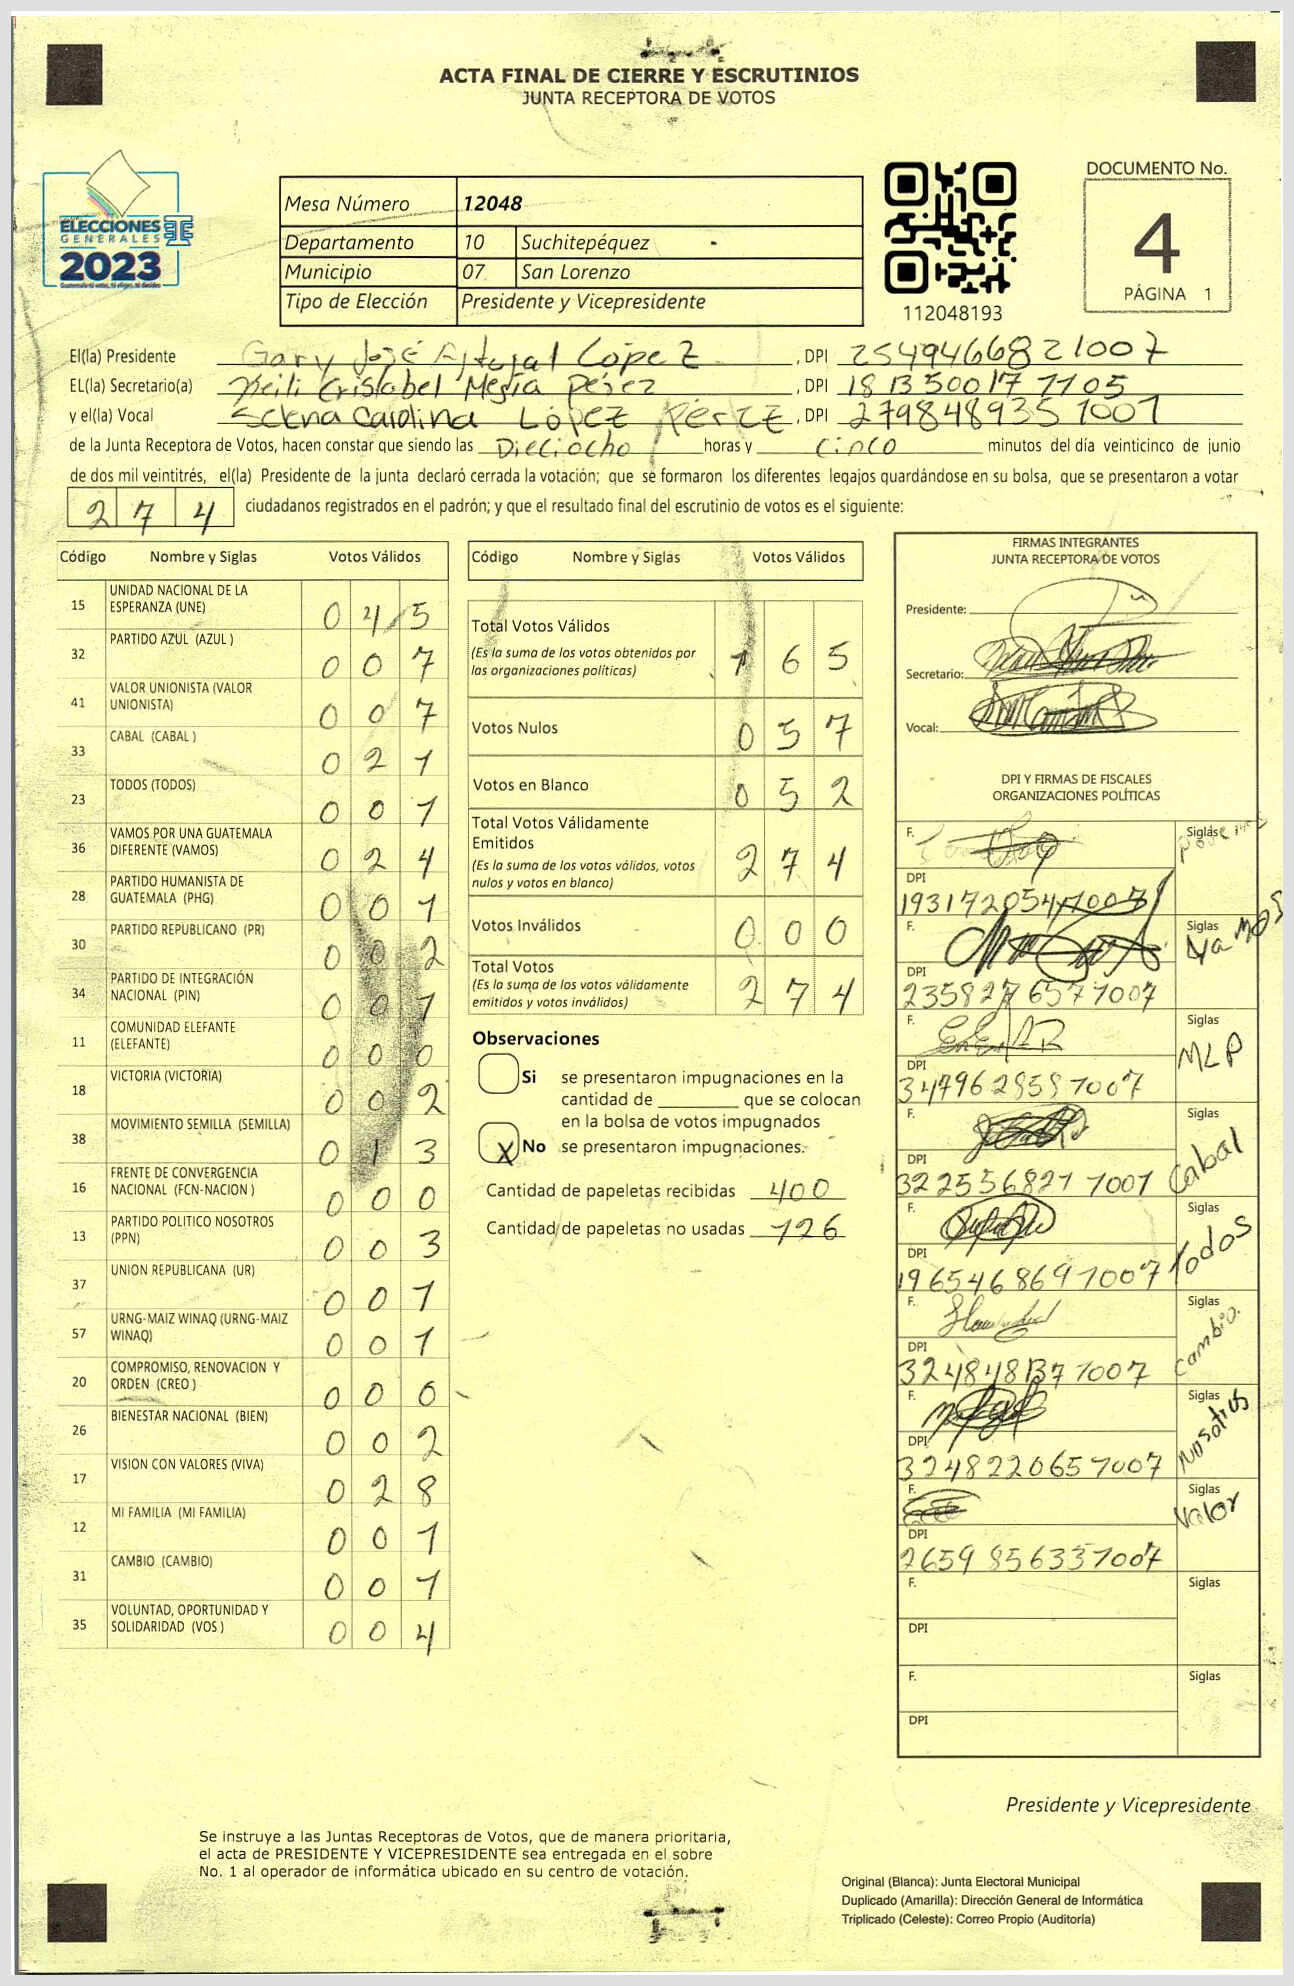 ACTA FINAL DE CIERRE Y ESCRUTINIOS
JUNTA RECEPTORA DE VOTOS
ELECCIONES
GENERALES
2023
Mesa Número 12048
Departamento 10 Suchitepéquez
Municipio 07 San Lorenzo
Tipo de Elección Presidente y Vicepresidente
112048193
DOCUMENTO No.
4
PÁGINA 1
El(la) Presidente Gary José López , DPI 2549466821007
EL(la) Secretario(a) Cristabel Mejía Pérez , DPI 1813500171105
y el(la) Vocal Selena Carolina López Pérez , DPI 2798489351001
de la Junta Receptora de Votos, hacen constar que siendo las Dieciocho horas y Cinco minutos del día veinticinco de junio
de dos mil veintitrés, el(la) Presidente de la junta declaró cerrada la votación; que se formaron los diferentes legajos quardándose en su bolsa, que se presentaron a votar
274 ciudadanos registrados en el padrón; y que el resultado final del escrutinio de votos es el siguiente:
Código Nombre y Siglas Votos Válidos
15 UNIDAD NACIONAL DE LA ESPERANZA (UNE) 045
32 PARTIDO AZUL (AZUL ) 007
41 VALOR UNIONISTA (VALOR UNIONISTA) 007
33 CABAL (CABAL ) 021
23 TODOS (TODOS) 001
36 VAMOS POR UNA GUATEMALA DIFERENTE (VAMOS) 024
28 PARTIDO HUMANISTA DE GUATEMALA (PHG) 001
30 PARTIDO REPUBLICANO (PR) 002
34 PARTIDO DE INTEGRACIÓN NACIONAL (PIN) 001
11 COMUNIDAD ELEFANTE (ELEFANTE) 000
18 VICTORIA (VICTORIA) 002
38 MOVIMIENTO SEMILLA (SEMILLA) 013
16 FRENTE DE CONVERGENCIA NACIONAL (FCN-NACION ) 000
13 PARTIDO POLITICO NOSOTROS (PPN) 003
37 UNION REPUBLICANA (UR) 001
57 URNG-MAIZ WINAQ (URNG-MAIZ WINAQ) 001
20 COMPROMISO, RENOVACION Y ORDEN (CREO ) 000
26 BIENESTAR NACIONAL (BIEN) 002
17 VISION CON VALORES (VIVA) 028
12 MI FAMILIA (MI FAMILIA) 001
31 CAMBIO (CAMBIO) 001
35 VOLUNTAD, OPORTUNIDAD Y SOLIDARIDAD (VOS ) 004
Código Nombre y Siglas Votos Válidos
Total Votos Válidos 165
(Es la suma de los votos obtenidos por
las organizaciones políticas)
Votos Nulos 057
Votos en Blanco 052
Total Votos Válidamente
Emitidos 274
(Es la suma de los votos válidos, votos
nulos y votos en blanco)
Votos Inválidos 000
Total Votos 274
(Es la suma de los votos válidamente
emitidos y votos inválidos)
Observaciones
Si se presentaron impugnaciones en la
cantidad de ________ que se colocan
en la bolsa de votos impugnados
X No se presentaron impugnaciones.
Cantidad de papeletas recibidas 400
Cantidad de papeletas no usadas 126
FIRMAS INTEGRANTES
JUNTA RECEPTORA DE VOTOS
Presidente:
Secretario:
Vocal:
DPI Y FIRMAS DE FISCALES
ORGANIZACIONES POLÍTICAS
F. Siglas
DPI 1931720541007
F. Siglas Vamos
DPI 2358276571007
F. Siglas MLP
DPI 3479628581007
F. Siglas Cabal
DPI 3225568211001
F. Siglas Todos
DPI 1965468691007
F. Siglas Cambio.
DPI 3248481371007
F. Siglas Nosotros
DPI 3248220651007
F. Siglas Valor
DPI 2659856331007
F. Siglas
DPI
F. Siglas
DPI
Presidente y Vicepresidente
Se instruye a las Juntas Receptoras de Votos, que de manera prioritaria,
el acta de PRESIDENTE Y VICEPRESIDENTE sea entregada en el sobre
No. 1 al operador de informática ubicado en su centro de votación.
Original (Blanca): Junta Electoral Municipal
Duplicado (Amarilla): Dirección General de Informática
Triplicado (Celeste): Correo Propio (Auditoría)